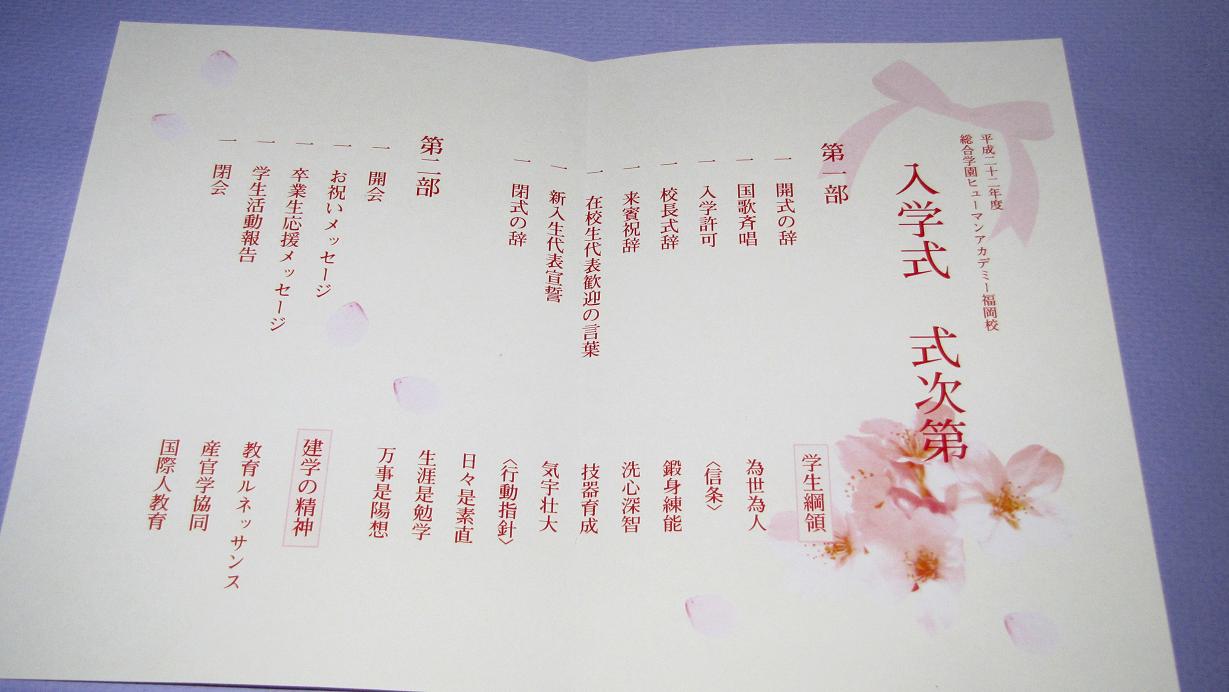 平成二十二年度
総合学園ヒューマンアカデミー福岡校
入学式 式次第
第一部
一 開式の辞
一 国歌斉唱
一 入学許可
一 校長式辞
一 来賓祝辞
一 在校生代表歓迎の言葉
一 新入生代表宣誓
一 閉式の辞
第二部
一 開会
一 お祝いメッセージ
一 卒業生応援メッセージ
一 学生活動報告
一 閉会
学生綱領
為世為人
〈信条〉
鍛身練能
洗心深智
技器育成
気宇壮大
〈行動指針〉
日々是素直
生涯是勉学
万事是陽想
建学の精神
教育ルネッサンス
産官学協同
国際人教育